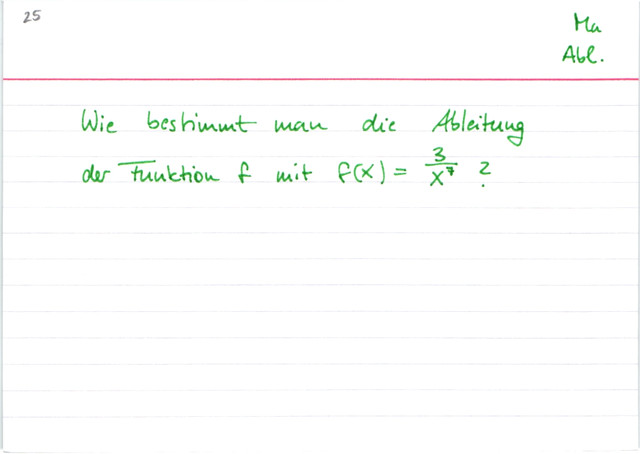 25
Ma
Abl.
Wie bestimmt man die Ableitung
der Funktion f mit f(x) = 3/x⁷ ?